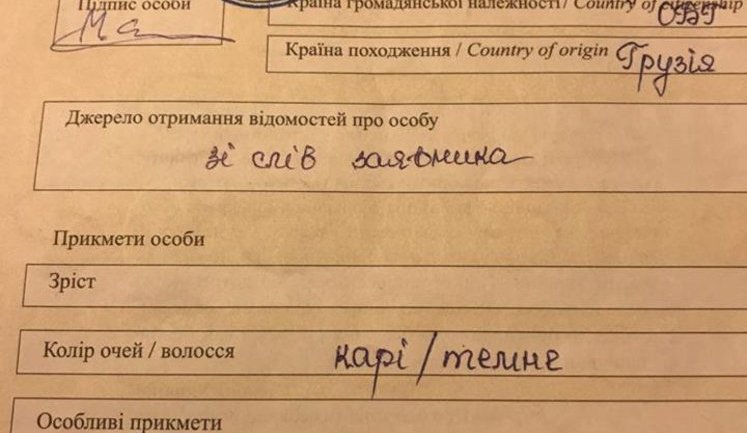 Підпис особи
Країна громадянської належності / Country of citizenship
ОБГ
Країна походження / Country of origin Грузія
Джерело отримання відомостей про особу
зі слів заявника
Прикмети особи
Зріст
Колір очей / волосся карі / темне
Особливі прикмети